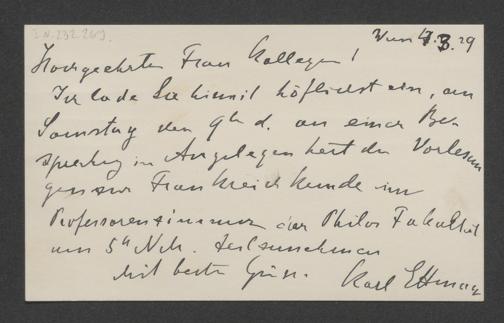 I.N. 232.269.
Wien 4.3.29
Hochgeehrte Frau Kollegin!
Ich lade Sie hiemit höflichst ein, am
Samstag den 9ten d. an einer Be-
sprechung in Angelegenheit der Vorlesun
gen zur Frankreichkunde im
Professorenzimmer der Philos Fakultät
um 5h Nch. teilzunehmen
Mit besten Grüßen
Karl Ettmayer